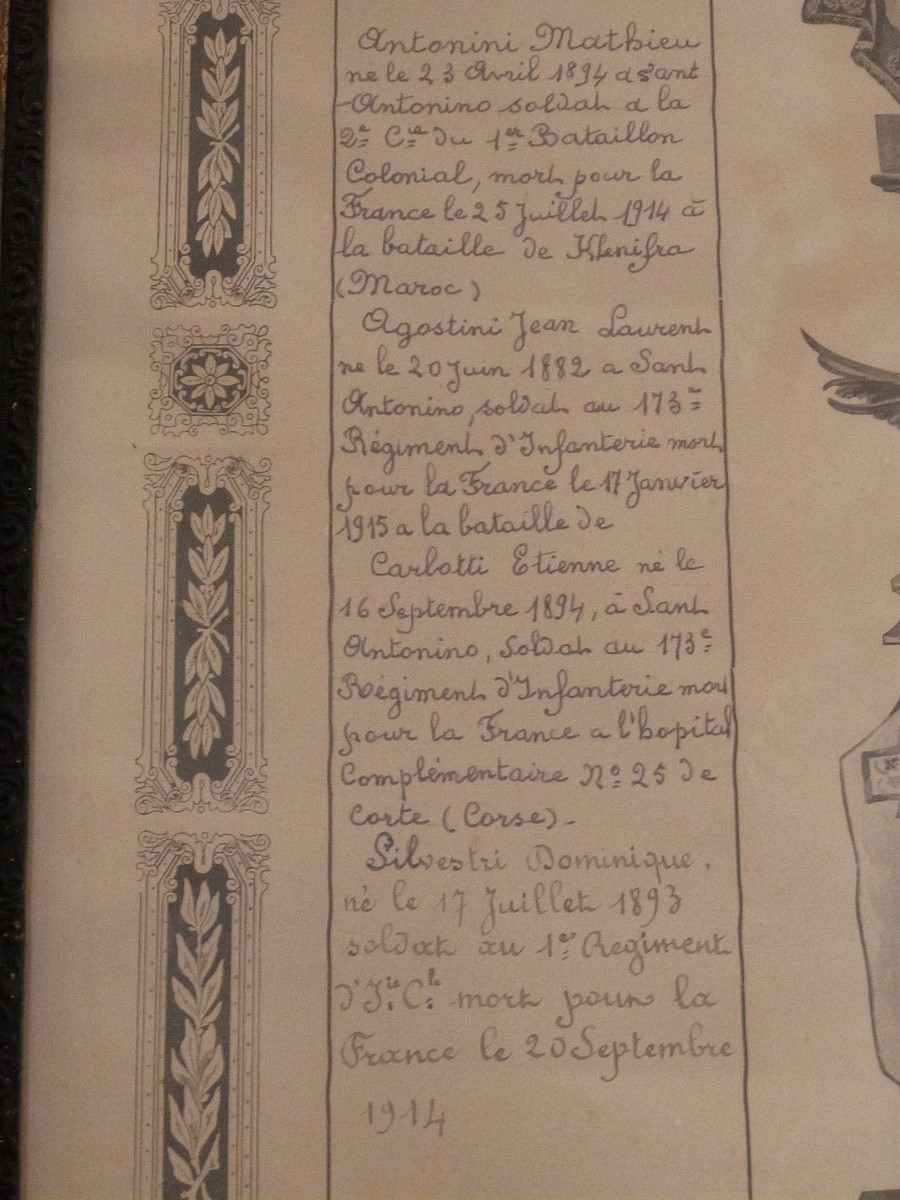 Antonini Mathieu
né le 23 Avril 1894 a S'ant
-Antonino soldat a la
2e Cie du 1er Bataillon
Colonial, mort pour la
France le 25 Juillet 1914 à
la bataille de Khenifra
(Maroc)
Agostini Jean Laurent
né le 20 Juin 1882 a Sant
Antonino, soldat au 173e
Régiment d'Infanterie mort
pour la France le 17 Janvier
1915 a la bataille de
Carlotti Etienne né le
16 Septembre 1894, à Sant
Antonino, Soldat au 173e
Régiment d'Infanterie mort
pour la France a l'hopital
Complémentaire No 25 de
Corte (Corse)-
Silvestri Dominique,
né le 17 Juillet 1893
soldat au 1er Regiment
d'Iie Cle mort pour la
France le 20 Septembre
1914